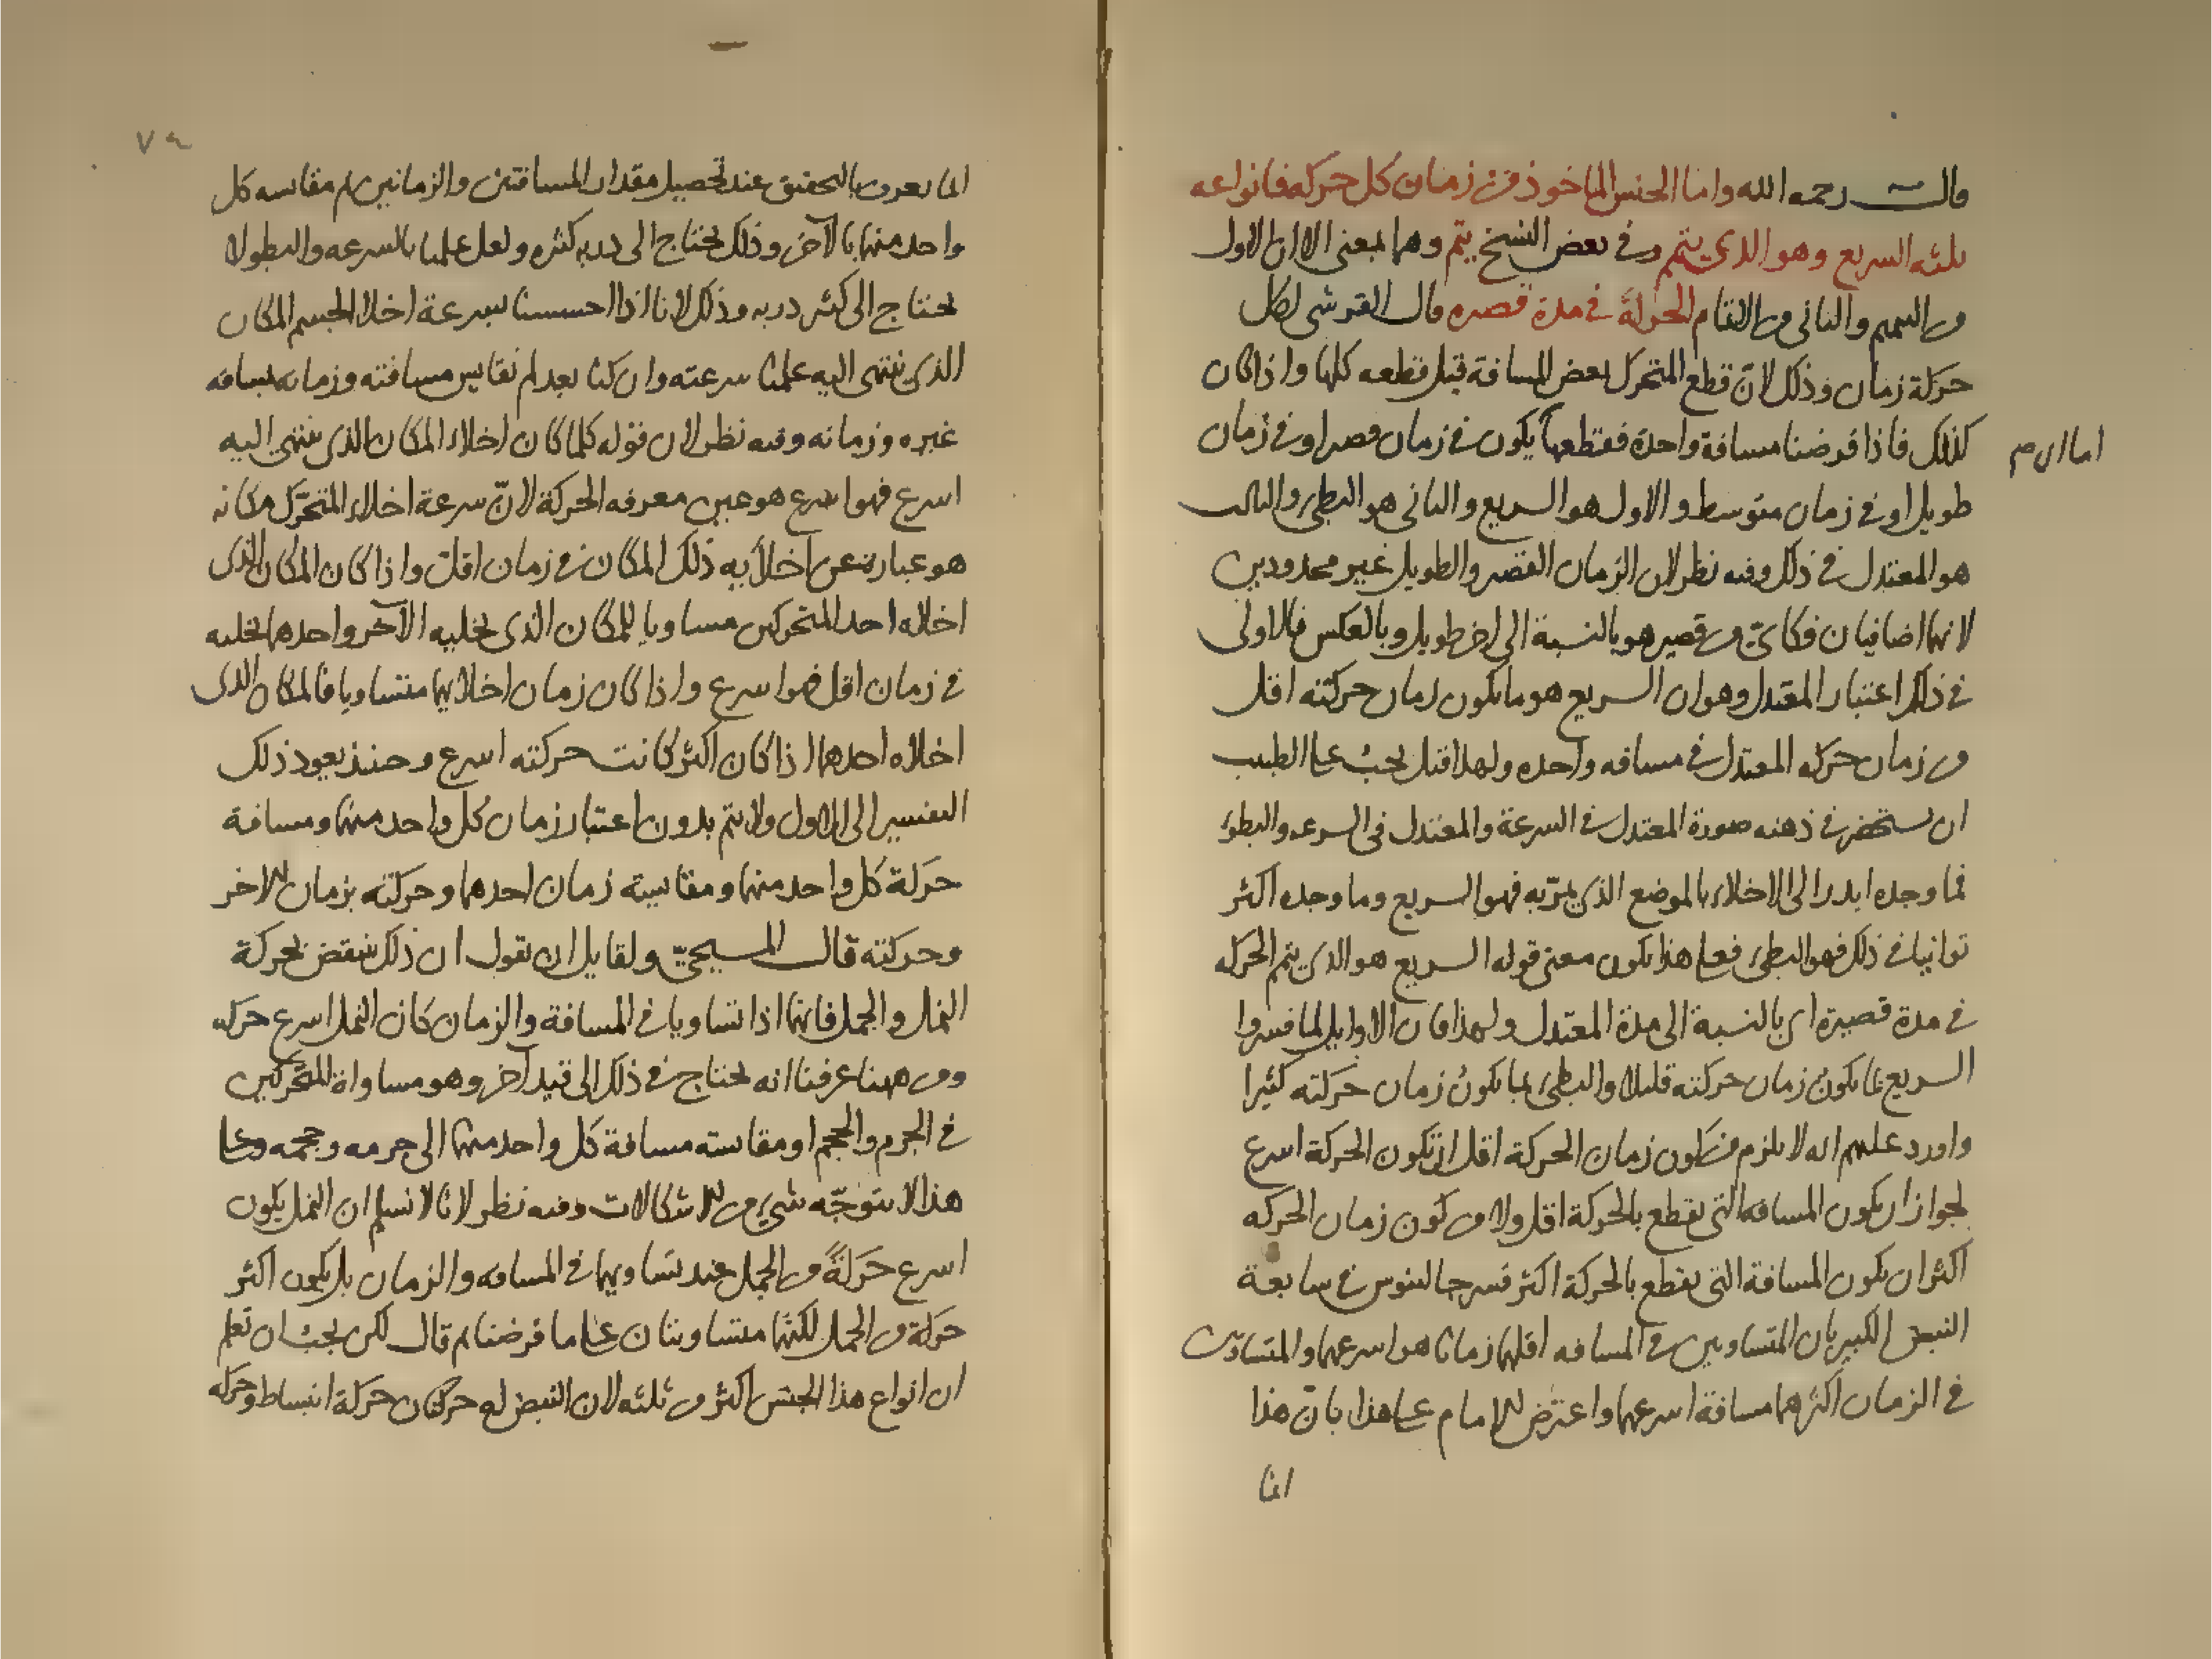 قال رحمه الله واما الجنس الماخوذ من زمان كل حركة فانواعه
ثلثه السريع وهو الذى يتمم وفى بعض النسخ يتم وهما بمعنى الا ان الاول
من التتميم والثانى من التمام الحركة فى مدة قصيره قال القرشى لكل
حركة زمان وذلك لان قطع المتحرك بعض المسافة قبل قطعه كلها واذا كان
كذلك فاذا فرضنا مسافة واحدة فقطعها يكون فى زمان قصير او فى زمان
اما ان م
طويل او فى زمان متوسط والاول هو السريع والثانى هو البطئ والثالث
هو المعتدل فى ذلك وفيه نظر لان الزمان القصير والطويل غير محدودين
لانهما اضافيان فكائن من قصير هو بالنسبة الى اخر طويل وبالعكس فالاولى
فى ذلك اعتبار المعتدل وهو ان السريع هو ما يكون زمان حركته اقل
من زمان حركه المعتدل فى مسافه واحده ولهذا قيل يجب على الطبيب
ان يستحضر فى ذهنه صورة المعتدل فى السرعة والمعتدل فى السرعه والبطؤ
فما وجده ابدر الى الاخلاء بالموضع الذى يمر به فهو السريع وما وجده اكثر
توانيا فى ذلك فهو البطئ فعلى هذا يكون معنى قوله السريع هو الذى يتم الحركه
فى مدة قصيرة اى بالنسبة الى مدة المعتدل ولهذا فان الاوايل لما فسروا
السريع بما يكون زمان حركته قليلا والبطئ بما يكون زمان حركته كثيرا
واورد عليهم انه لا يلزم من كون زمان الحركة اقل ان تكون الحركة اسرع
لجواز ان يكون المسافه التى يقطع بالحركة اقل ولا من كون زمان الحركه
اكثر ان يكون المسافة التى يقطع بالحركة اكثر فسر جالينوس فى سابعة
النبض الكبير بان المتساويين فى المسافه اقلهما زمانا هو اسرعهما والمتساويين
فى الزمان اكثرهما مسافة اسرعهما واعترض الامام على هذا بان هذا
انما
٧٤
انما يعرف بالتحقيق عند تحصيل مقدار المسافتين والزمانين ثم مقايسه كل
واحد منهما بالآخر وذلك يحتاج الى دربه كثره ولعل علمنا بالسرعه والبطو لا
يحتاج الى كثير دربه وذلك لانا اذا احسسنا بسرعة اخلا الجسم المكان
الذى ينتهى اليه علمنا سرعته وان كنا بعد لم نقايس مسافته وزمانه بمسافه
غيره وزمانه وفيه نظر لان قوله كلما كان اخلاء المكان الذى ينتهى اليه
اسرع فهو اسرع هو عين معرفه الحركة لان سرعة اخلاء المتحرك مكانه
هو عبارة عن اخلائه ذلك المكان فى زمان اقل واذا كان المكان الذى
اخلاه احد المتحركين مساويا للمكان الذى يخليه الآخر واحدهما يخليه
فى زمان اقل فهو اسرع واذا كان زمان اخلائهما متساويا فالمكان الذى
اخلاه احدهما اذا كان اكثر كانت حركته اسرع وحينئذ يعود ذلك
التفسير الى الاول ولا يتم بدون اعتبار زمان كل واحد منهما ومسافة
حركة كل واحد منهما ومقايسة زمان احدهما وحركته بزمان الاخر
وحركته قال المسيحى ولقايل ان يقول ان ذلك ينتقض بحركة
النمل والجمل فانهما اذا تساويا فى المسافة والزمان كان النمل اسرع حركه
ومن ههنا عرفنا انه يحتاج فى ذلك الى قيد آخر وهو مساواة المتحركين
فى الجرم والحجم او مقايسته مسافة كل واحد منهما الى جرمه وحجمه وعلى
هذا لا يتوجه شئ من الاشكالات وفيه نظر لانا لا نسلم ان النمل يكون
اسرع حركة من الجمل عند تساويهما فى المسافه والزمان بل يكون اكثر
حركة من الجمل لكنهما متساويتان على ما فرضنا ثم قال لكن يجب ان تعلم
ان انواع هذا الجنس اكثر من ثلثه لان النبض له حركتان حركة انبساط وحركه